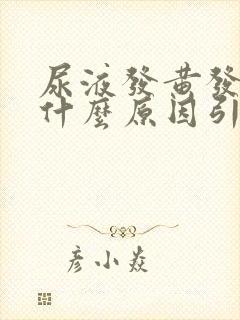 尿液發黃發
什麼原因引
彦小焱